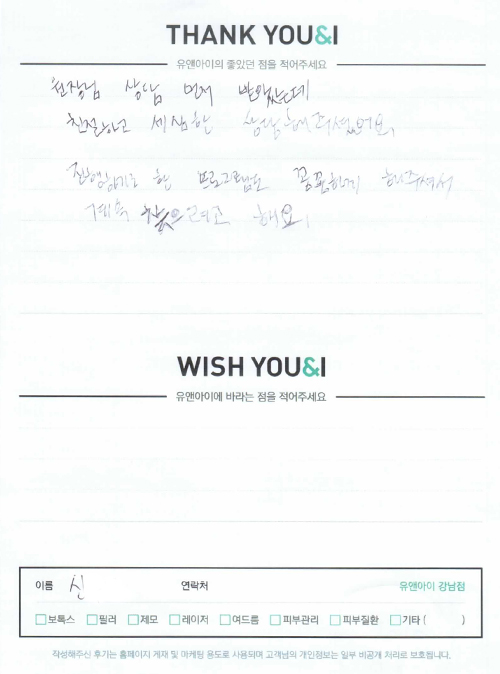 THANK YOU&I
유앤아이의 좋았던 점을 적어주세요
원장님 상담 먼저 받았는데
친절하고 세심한 상담해주셨어요.
진행하기로 한 프로그램도 꼼꼼하게 해주셔서
계속 찾으려고 해요.
WISH YOU&I
유앤아이에 바라는 점을 적어주세요
이름 신 연락처 유앤아이 강남점
보톡스 필러 제모 레이저 여드름 피부관리 피부질환 기타 ( )
작성해주신 후기는 홈페이지 게재 및 마케팅 용도로 사용되며 고객님의 개인정보는 일부 비공개 처리로 보호됩니다.